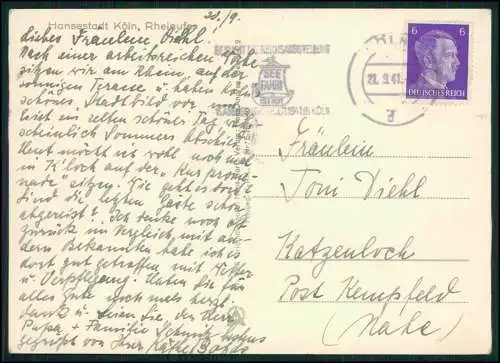 Hansestadt Köln, Rheinufer
21./9.
Liebes Fräulein Diehl!
Nach einer arbeitsreichen Woche
sitzen wir am Rhein, auf der
sonnigen Terasse u. haben ein
schönes Stadtbild vor uns
ist ein selten schöner Tag, wahr-
scheinlich Sommers Abschied.
Heut möcht ich wohl noch mal
in K'loch auf der "Kurprome-
nade" sitzen. Wie geht es dort
sind die letzten Gäste schon
abgereist? Ich denke noch oft
zurück im Vergleich mit an-
dern Bekannten habe ich es
dort gut getroffen mit Wetter
u. Verpflegung. Haben Sie für
alles Gute noch mals herzl.
Dank u. seien Sie, der Herr
Papa + Familie
gegrüßt von Ihrer Käthe
SEE
FAHRT
KÖLN
21.9.41
6 6
DEUTSCHES REICH
Fräulein
Toni Diehl
Katzenloch
Post Kempfeld
(Nahe)